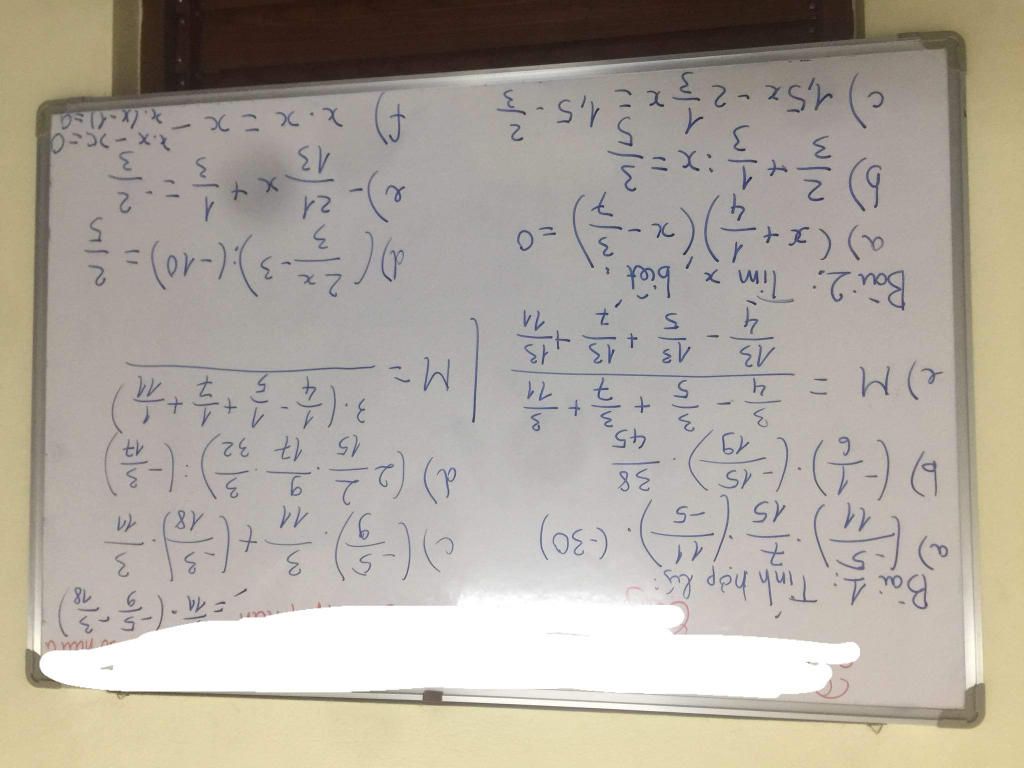 = 11 . (-5/9 - 3/18)
Bài 1: Tính hợp lý:
a) (-5/11) . 7/15 . (11/-5) . (-30)
b) (-1/6) . (-15/19) . 38/45
c) (-5/9) . 3/11 + (-3/18) . 3/11
d) (2 2/15 . 9/17 . 3/32) : (-3/17)
e) M = (3/4 - 3/5 + 3/7 + 3/11) / (13/4 - 13/5 + 13/7 + 13/11)
M = 3.(1/4 - 1/5 + 1/7 + 1/11)
Bài 2: Tìm x, biết:
a) (x + 1/4)(x - 3/7) = 0
b) 2/3 + 1/3 : x = 3/5
c) 1,5x - 2 1/3 x = 1,5 - 2/3
d) (2x/3 - 3) : (-10) = 2/5
e) -21/13 x + 1/3 = -2/3
f) x . x = x -
x.x - x = 0
x.(x-1) = 0